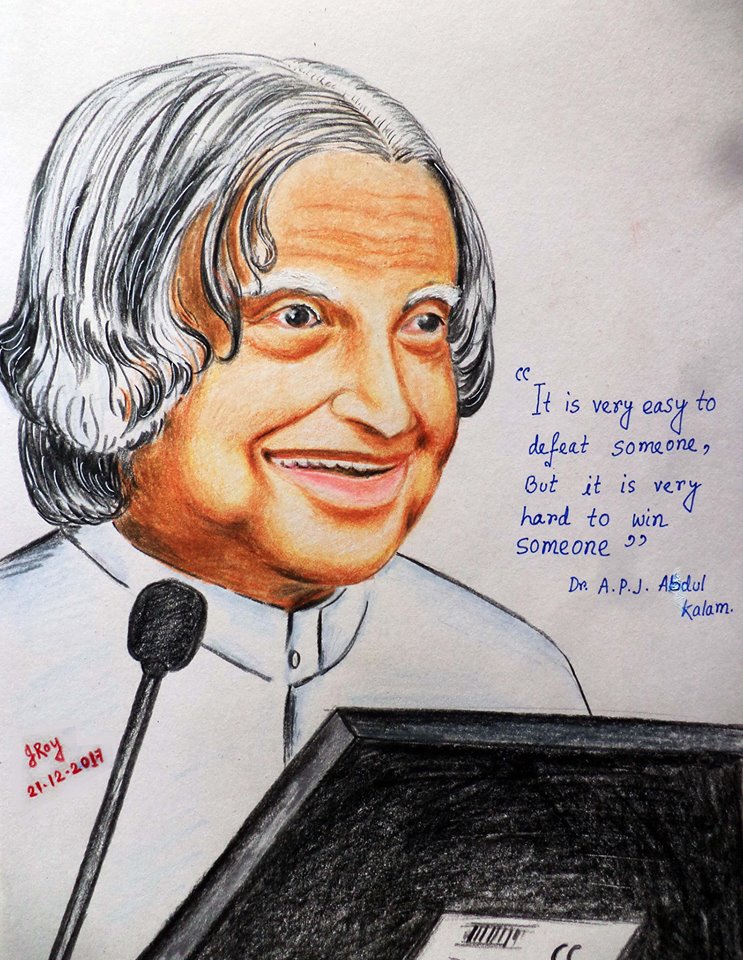 “ It is very easy to
defeat someone,
But it is very
hard to win
someone ”
Dr. A.P.J. Abdul
Kalam.
J Roy
21-12-2017
“